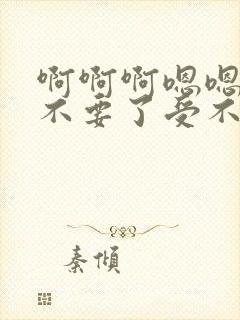 啊啊啊嗯嗯
不要了受不
秦倾